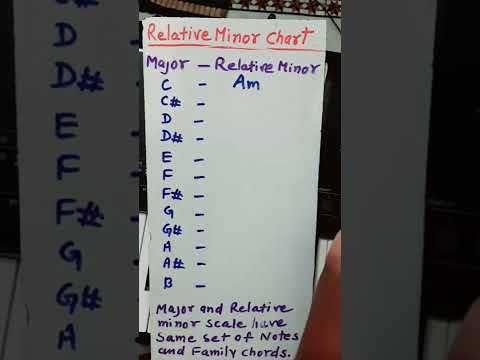 Relative Minor Chart
Major – Relative Minor
C – Am
C# –
D –
D# –
E –
F –
F# –
G –
G# –
A –
A# –
B –
Major and Relative
minor scale have
Same set of Notes
and Family chords.